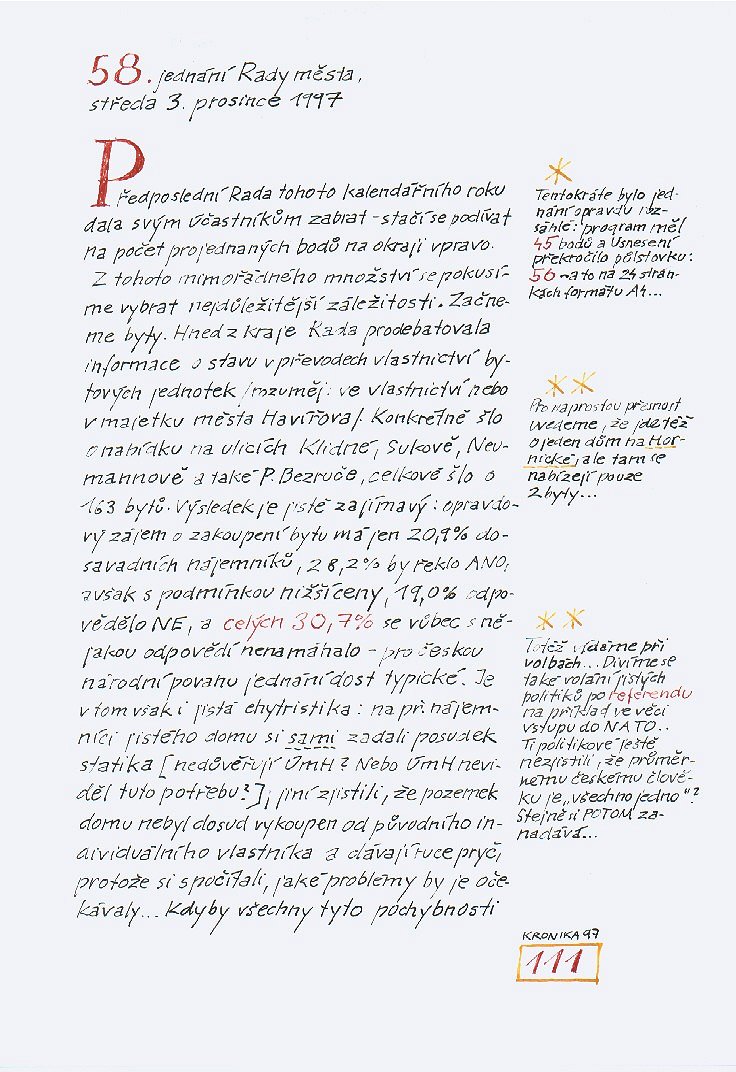 58. jednání Rady města,
středa 3. prosince 1997
Předposlední Rada tohoto kalendářního roku
dala svým účastníkům zabrat - stačí se podívat
na počet projednaných bodů na okraji vpravo.
Z tohoto mimořádného množství se pokusí-
me vybrat nejdůležitější záležitosti. Začne-
me byty. Hned z kraje Rada prodebatovala
informace o stavu v převodech vlastnictví by-
tových jednotek /rozuměj: ve vlastnictví nebo
v majetku města Havířova/. Konkrétně šlo
o nabídku na ulicích Klidné, Sukově, Neu-
mannově a také P. Bezruče, celkově šlo o
163 bytů. Výsledek je jistě zajímavý: opravdo-
vý zájem o zakoupení bytu má jen 20,9% do-
savadních nájemníků, 28,2% by řeklo ANO,
avšak s podmínkou nižší ceny, 19,0% odpo-
vědělo NE, a celých 30,7% se vůbec s ně-
jakou odpovědí nenamáhalo - pro českou
národní povahu jednání dost typické. Je
v tom však i jistá chytristika: např. nájem-
níci jistého domu si sami zadali posudek
statika [nedůvěřují ÚmH? Nebo ÚmH nevi-
děl tuto potřebu?]; jiní zjistili, že pozemek
domu nebyl dosud vykoupen od původního in-
dividuálního vlastníka a dávají ruce pryč,
protože si spočítali, jaké problémy by je oče-
kávaly... Kdyby všechny tyto pochybnosti
*
Tentokráte bylo jed-
nání opravdu roz-
sáhlé: program měl
45 bodů a Usnesení
překročilo půlstovku:
56 - a to na 24 strán-
kách formátu A4...
**
Pro naprostou přesnost
uvedeme, že jde též
o jeden dům na Hor-
nické, ale tam se
nabízejí pouze
2 byty...
**
Totéž vídáme při
volbách... Divíme se
také volání jistých
politiků po referendu
na příklad ve věci
vstupu do NATO..
Ti politikové ještě
nezjistili, že průměr-
nému českému člově-
ku je „všechno jedno“?
Stejně si POTOM za-
nadává...
KRONIKA 97
111